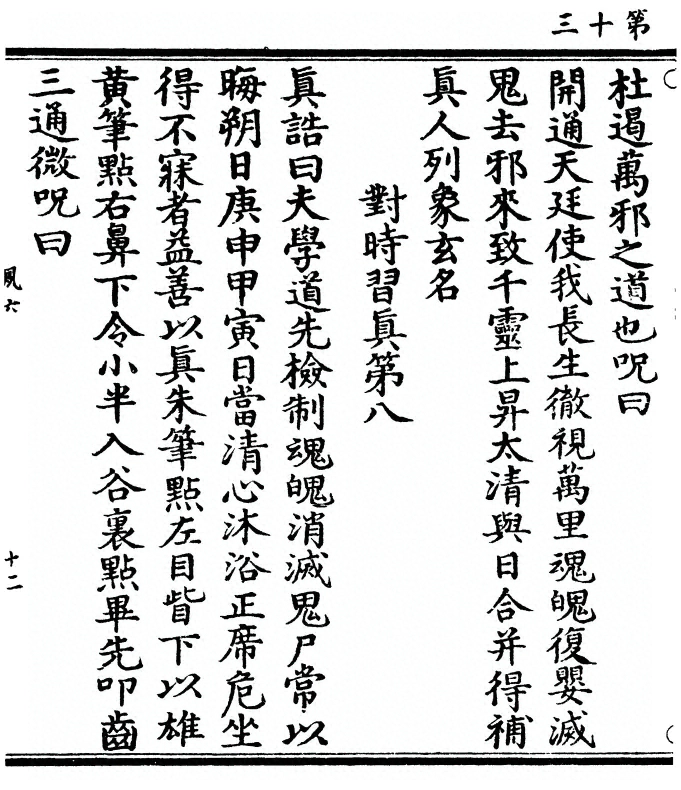 第十三
杜遏萬邪之道也呪曰
開通天廷使我長生徹視萬里魂魄復嬰滅
鬼去邪來致千靈上昇太清與日合并得補
真人列象玄名
對時習真第八
真誥曰夫學道先檢制魂魄消滅鬼尸常以
晦朔日庚申甲寅日當清心沐浴正席危坐
得不寐者益善以真朱筆點左目眥下以雄
黃筆點右鼻下令小半入谷裏點畢先叩齒
三通微呪曰
風六
十二